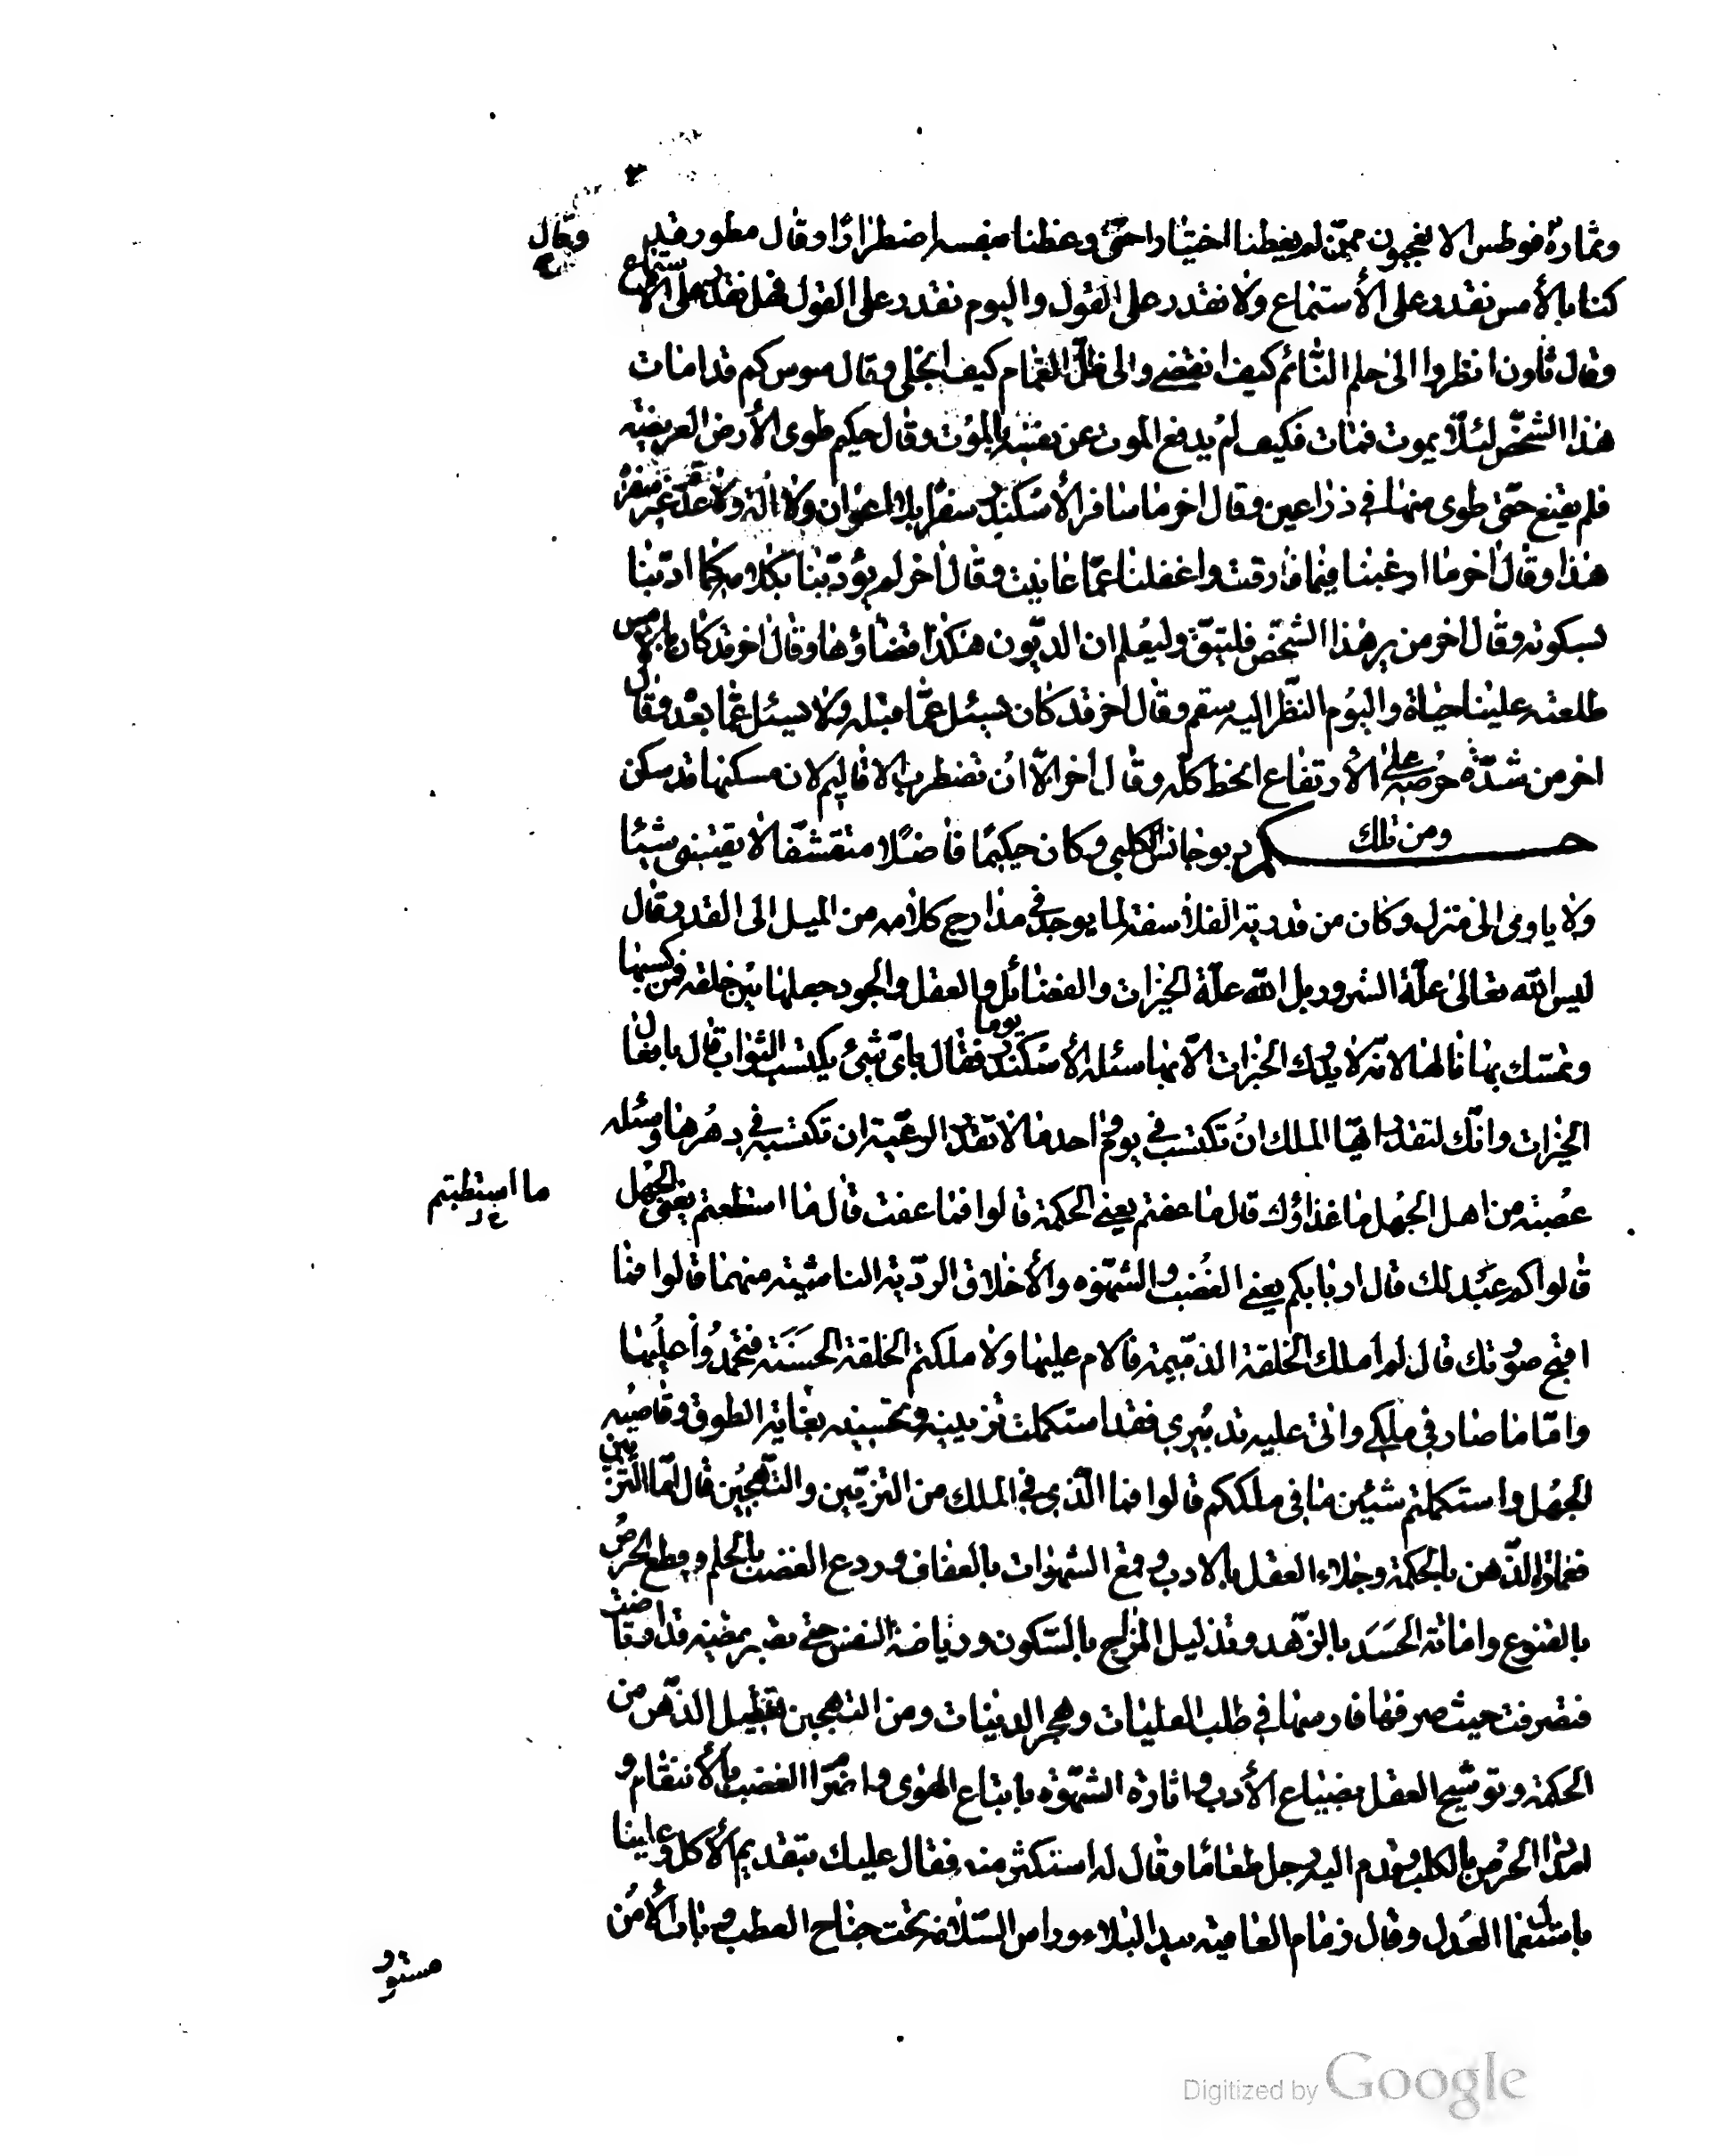 وقال
وثمارة فوطس الا تعجبون ممن لم يعظنا اختيارا حتى وعظنا بنفسه اضطرارا وقال مطور قد
كنا بالأمس نقدر على الأستماع ولا نقدر على القول واليوم نقدر على القول فهل نقدر على الأستماع
وقال ثاون انظروا الى حلم النائم كيف انقضى والى ظل الغمام كيف انجلى وقال سوس كم قد امات
هذا الشخص لئلا يموت فمات فكيف لم يدفع الموت عن نفسه بالموت وقال حكيم طوى الأرض العريضة
فلم يقنع حتى طوى منها في ذراعين وقال اخر ما سافر الأسكندر سفرا بلا اعوان ولا آلة ولا عدة غير سفره
هذا وقال اخر ما ارغبنا فيما فارقت واغفلنا عما عاينت وقال اخر لم يؤدبنا بكلامه كما ادبنا
بسكوته وقال اخر من ير هذا الشخص فليتق وليعلم ان الديون هكذا قضاؤها وقال اخر قد كان بالامس
طلعته علينا حياة واليوم النظر اليه سقم وقال اخر قد كان يسئل عما قبله ولا يسئل عما بعده وقال
اخر من شدة حرصه على الأرتفاع انحط كله وقال اخر الآن تضطرب الاقاليم لان مسكنها قد سكن
ومن ذلك حكم ديوجانس الكلبي وكان حكيما فاضلا متقشفا لا يقتني شيئا
ولا ياوى الى منزل وكان من قدرية الفلاسفة لما يوجد في مدارج كلامه من الميل الى القدر قال
ليس الله تعالى علة الشرور بل الله علة الخيرات والفضائل والعقل والجود جعلها بين خلقه فمن كسبها
وتمسك بها نالها لانه لا يدرك الخيرات الا بها سئله الأسكندر يوما فقال باى شىء يكتسب الثواب قال بافعال
الخيرات وانك لتقدر ايها الملك ان تكتسب في يوم واحد ما لا تقدر الرعية ان تكتسبه في دهرها وسئله
عصبة من اهل الجهل ما غذاؤك قال ما عفتم يعني الحكمة قالوا فما عفت قال ما استطعتم يعني الجهل
ما استطبتم
قالوا كم عبد لك قال اربابكم يعني الغضب والشهوة والأخلاق الردية الناشئة منهما قالوا فما
اقبح صورتك قال لم املك الخلقة الذميمة فالام عليها ولا ملكتم الخلقة الحسنة فتحمدوا عليها
واما ما صار في ملكي واتى عليه تدبيري فقد استكملت تزيينه وتحسينه بغاية الطوق وقاصية
الجهل واستكملتم شين ما في ملككم قالوا فما الذي في الملك من التزيين والتهجين قال اما التزيين
فعمارة الذهن بالحكمة وجلاء العقل بالادب وقمع الشهوات بالعفاف وردع الغضب بالحلم وقطع الحرص
بالقنوع واماتة الحسد بالزهد وتذليل المزاج بالسكون ورياضة النفس حتى تصير مطية قد ارتاضت
فتصرفت حيث صرفها فارسها في طلب العليات وهجر الدنيات ومن التهجين تعطيل الذهن من
الحكمة وتوشيح العقل بضياع الأدب واثارة الشهوة باتباع الهوى واضرام الغضب بالأنتقام و
امداد الحرص بالكلب وقدم اليه رجل طعاما وقال له استكثر منه فقال عليك بتقديم الأكل وعلينا
باستعمال العدل وقال زمام العافية بيد البلاء وراس السلامة تحت جناح العطب وباب الأمن
مستور
Digitized by Google